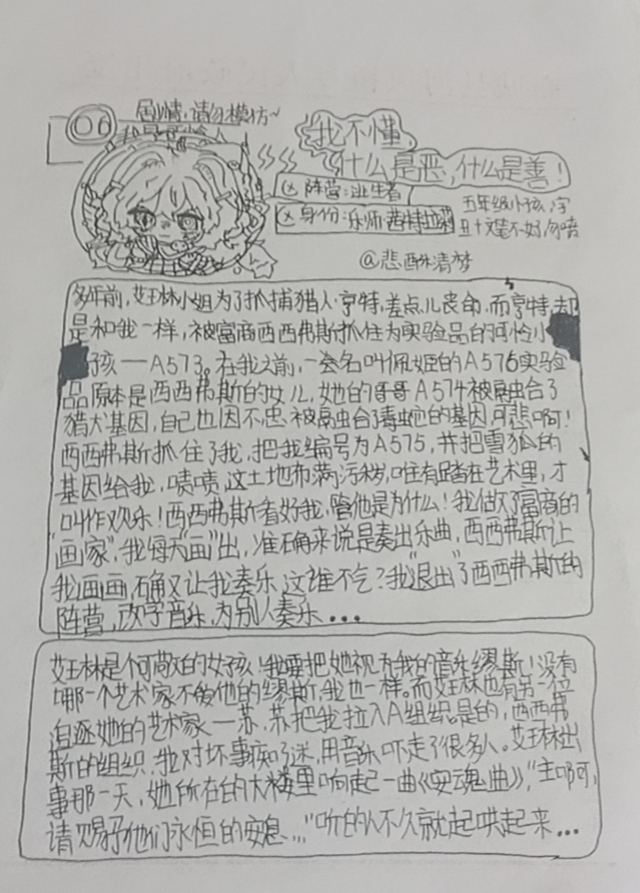 06
剧情,请勿模仿~
我不懂
什么是恶,什么是善!
阵营:逃生者
身份:乐师
五年级小孩,字
丑+文笔不好,勿喷
@悲酥清梦
多年前,艾玉林小姐为了抓捕猎人·亨特,差点儿丧命.而亨特,却
是和我一样,被富商西西弗斯抓住为实验品的可怜小
孩—A573。在我之前,一名名叫佩姬的A576实验
品原本是西西弗斯的女儿,她的哥哥A574被融合了
猎犬基因,自己也因不忠被融合了毒蛇的基因,可悲啊!
西西弗斯抓住了我,把我编号为A575,并把雪狐的
基因给我,啧啧,这土地布满污秽,唯有踏在艺术里,才
叫作欢乐!西西弗斯看好我,管他是为什么!我做了富商的
“画家”,我每天“画”出,准确来说是奏出乐曲,西西弗斯让
我画画,确又让我奏乐,这谁不气?我“退出”了西西弗斯的
阵营,改学音乐,为别人奏乐...
艾玉林是个可敬的女孩!我要把她视为我的音乐缪斯!没有
哪一个艺术家不爱他的缪斯,我也一样。而艾玉林也有另一位
追逐她的艺术家—苏,苏把我拉入A组织。是的,西西弗
斯的组织.我对坏事痴了迷,用音乐吓走了很多人。艾玉林出
事那一天,她所在的大楼里响起一曲《安魂曲》,“主啊,
请赐予他们永恒的安息...”听的人不久就起哄起来...